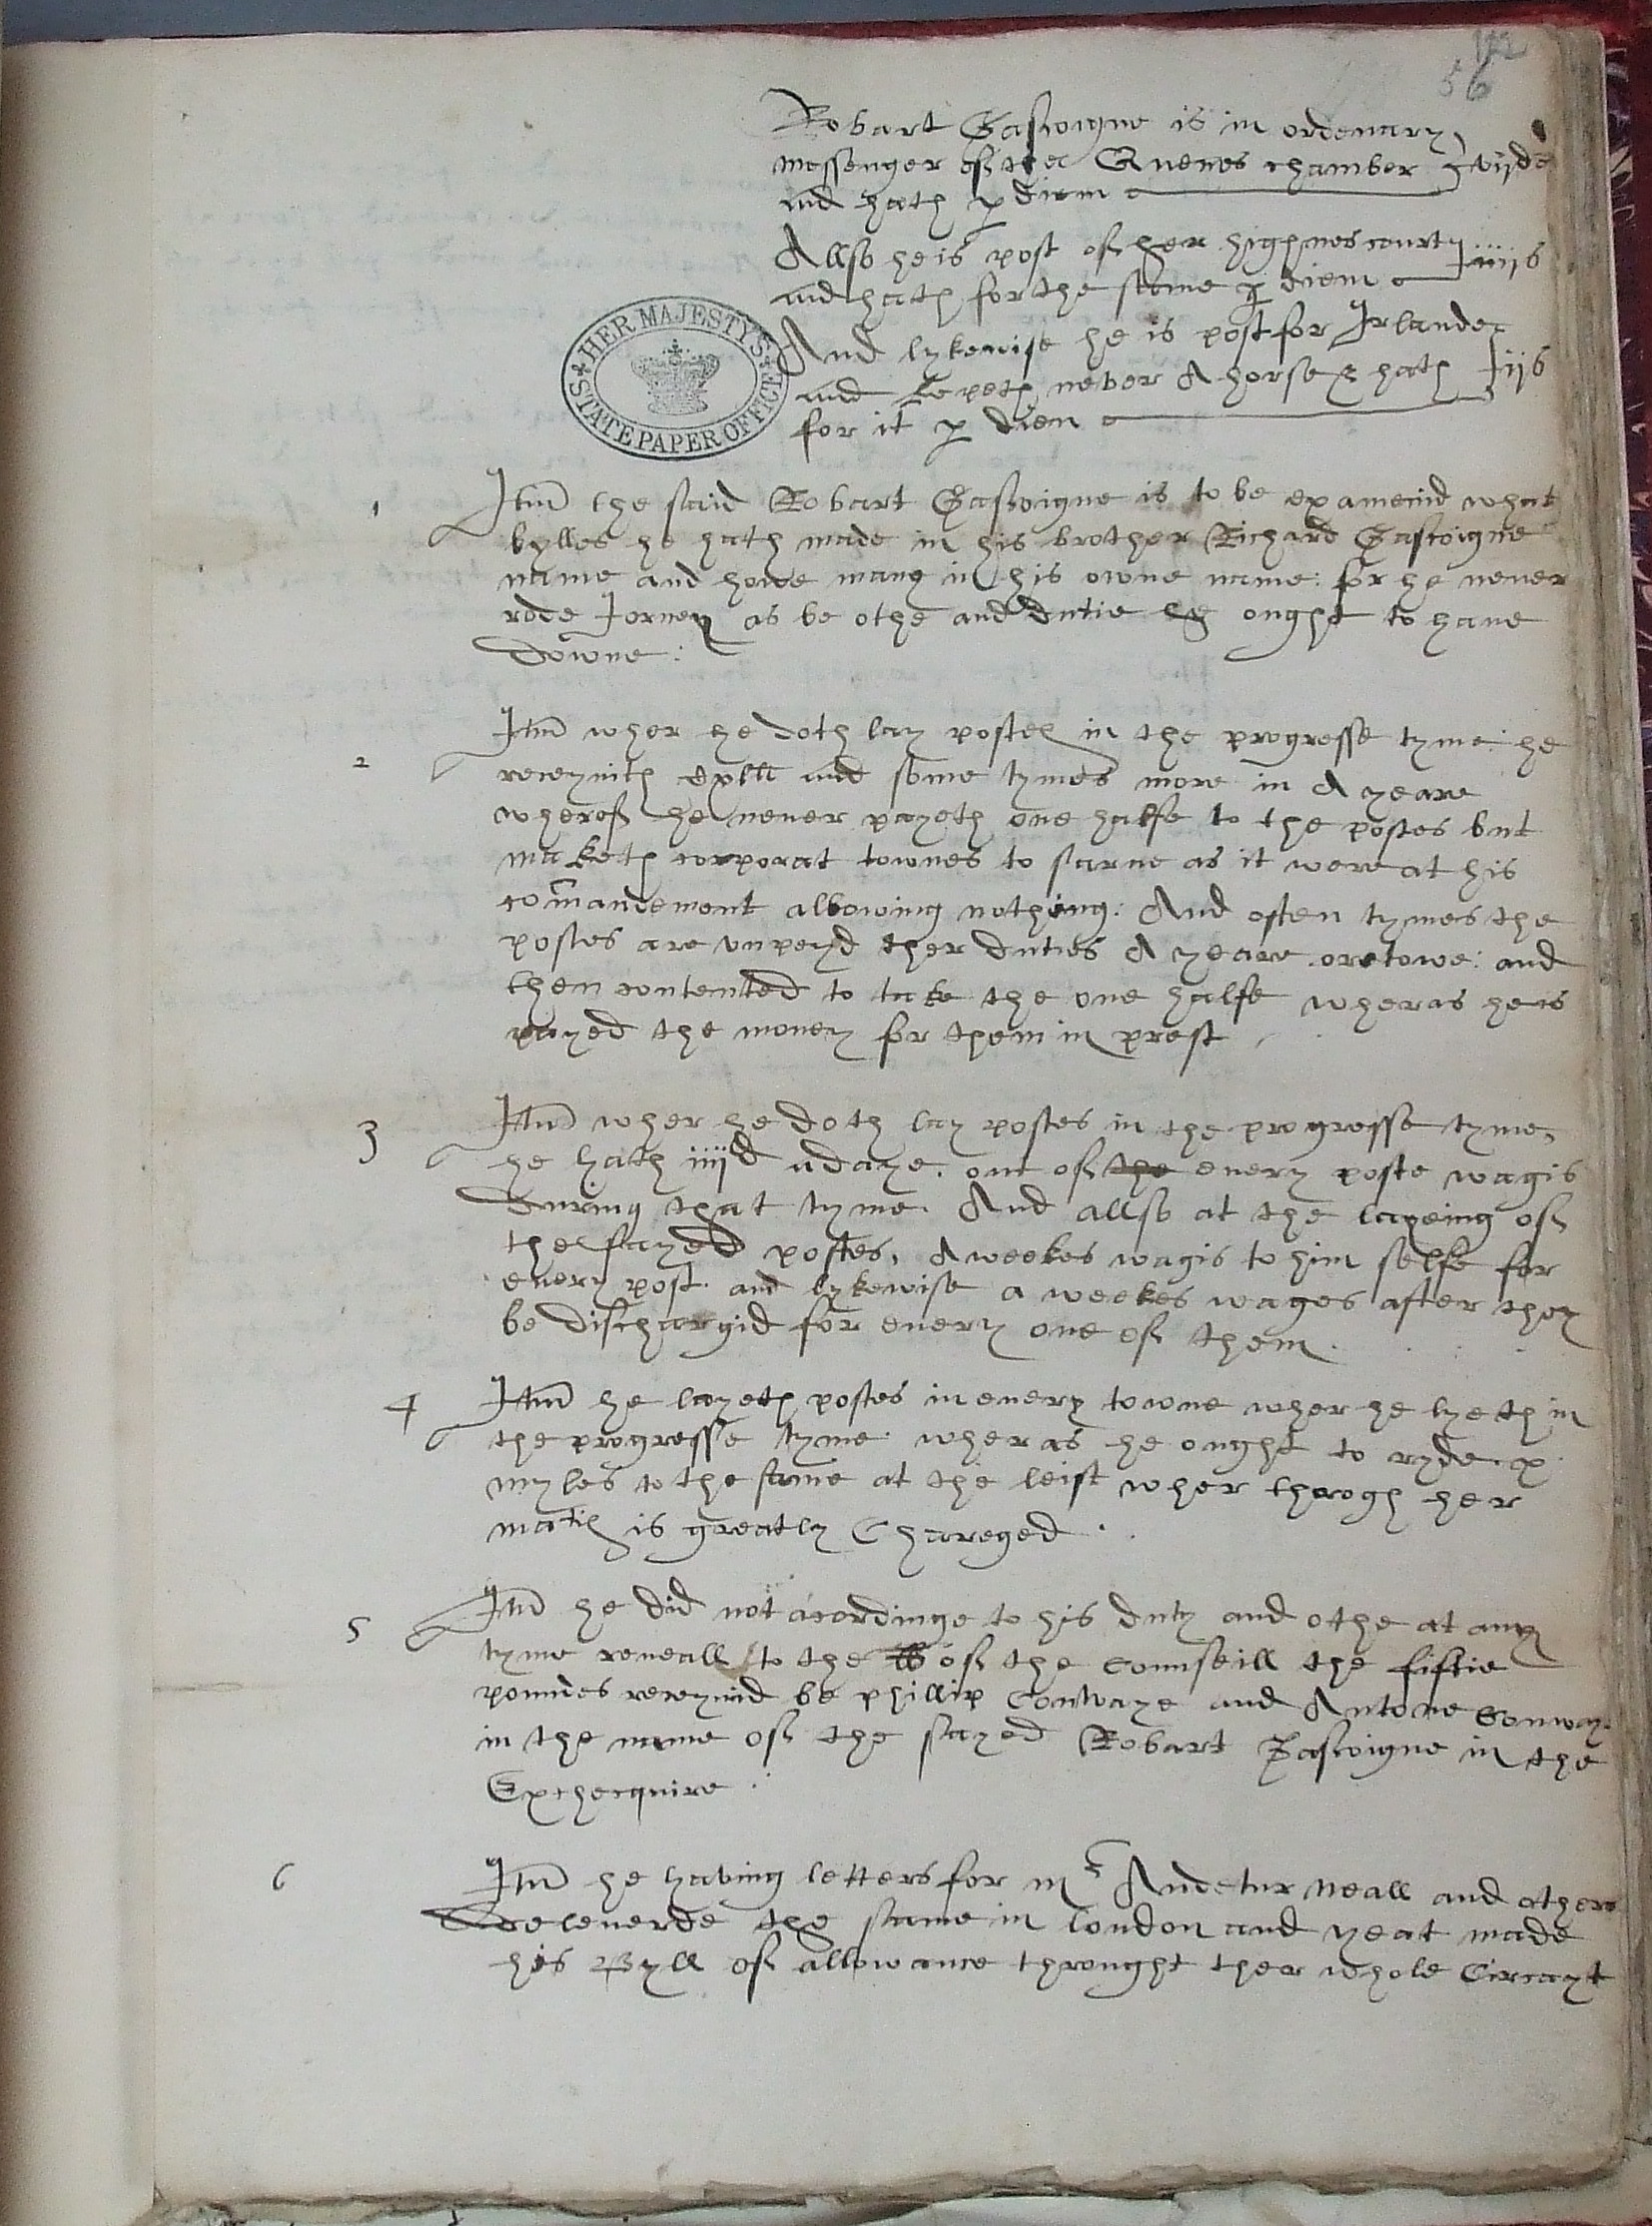 122
56
Robart Gascoigne is in ordenary
messenger of the Quenes chamber viijd
and hath p diem
Allso he is post of her highnes court iiijs
and hath for the same p diem
And lykewise he is post for Irlande
and kepeth never A horse & hath ijs
for it p diem
HER MAJESTY'S STATE PAPER OFFICE
1 Itm the said Robart Gascoigne is to be examenid what
bylles he hath made in his brother Richard Gascoigne
name and howe many in his owne name: for he never
rode Jorney as be othe and dutie he ought to have
downe:
2 Itm wher he doth lay postes in the progresse tyme: he
receyvith and some tymes more in A yeare
wherof he never payeth one halfe to the postes but
maketh corporat townes to sarve as it were at his
comandement allowing nothing: And often tymes the
postes are unpeyd ther duties A yeare or towe: and
then contented to take the one halfe wheras he is
payed the money for them in prest
3 Itm wher he doth lay postes in the progresse tyme,
he hath iiijd a daye. out of the every poste wagis
during that tyme. And allso at the layeing of
the sayed postes, A weekes wagis to him selfe for
every post. and lykewise a weekes wages after they
be dischargid for every one of them.
4 Itm he layeth postes in every towne wher he lyeth in
the progresse tyme. wheras he ought to ryde. x
myles to the same at the leist wher throgh her
matis is greatly Chareged.
5 Itm he did not acordinge to his duty and othe at any
tyme reveall to the ll of the counseill the fiftie
poundes receyvid be phillip Conwaye and Antone Conway
in the name of the sayed Robart Gascoigne in the
Exchequire.
6 Itm he having letters for mr Andetur Neall and others
Deleverde the same in London and yeat made
his Byll of allowance throught ther whole Circayt